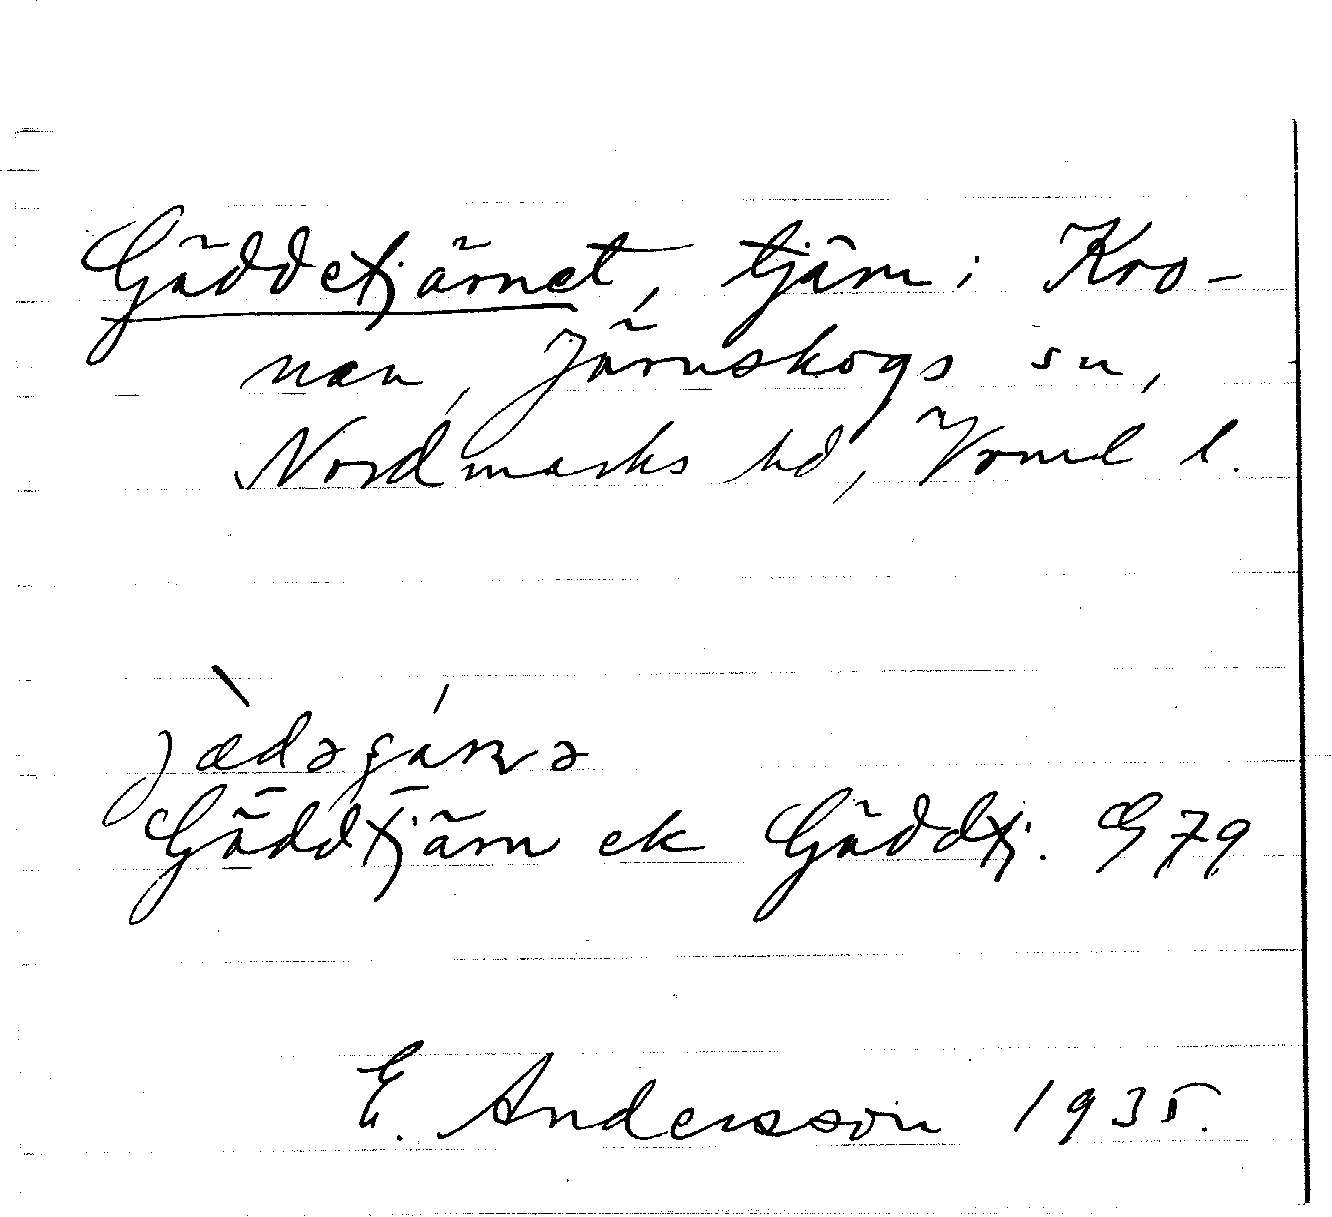 Gäddetjärnet, tjärn i Kro-
nan, Järnskogs sn,
Nordmarks hd, Vrml l.
Gäddtjärn ek Gäddtj. G 79
E. Andersson 1935.